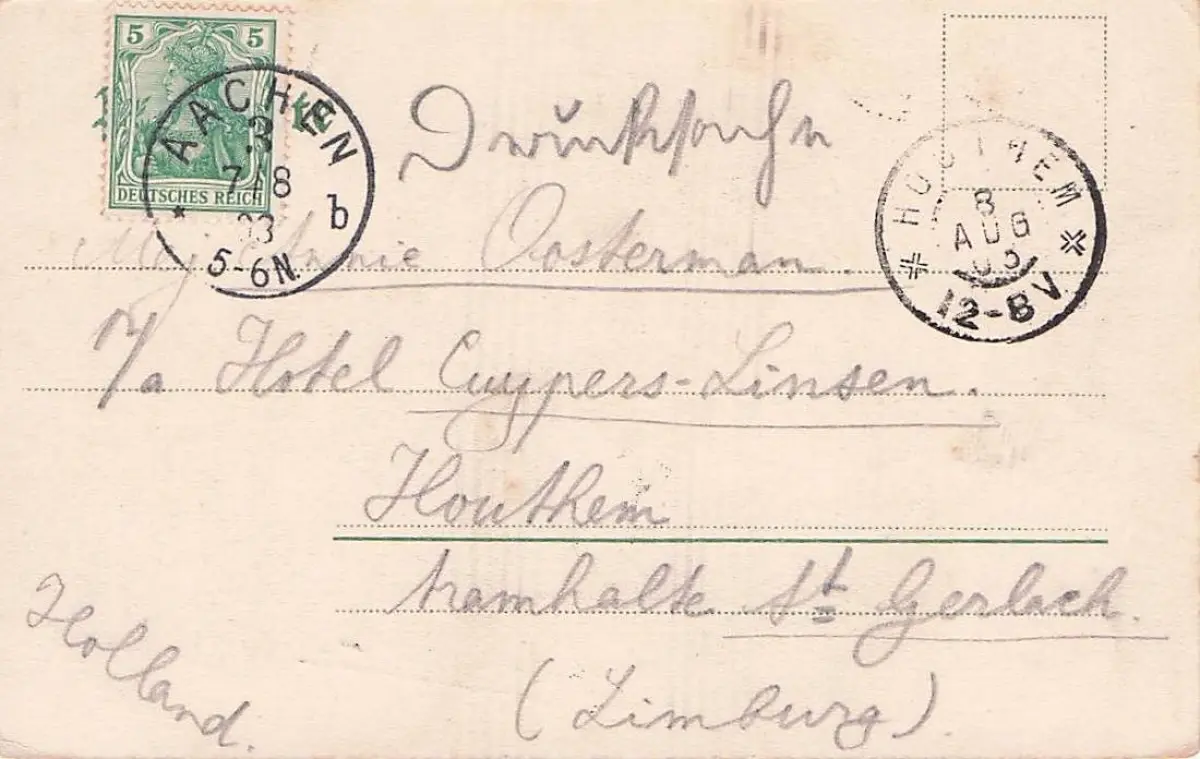 5 5
DEUTSCHES REICH
AACHEN
.3
7.8
03
5-6N.
* b
HOUTHEM
8
AUG
03
12-8V
Drucksache
Mej Annie Oosterman.
p/a Hotel Cuypers-Linsen.
Houthem
tramhalte St Gerlach.
(Limburg)
Holland.